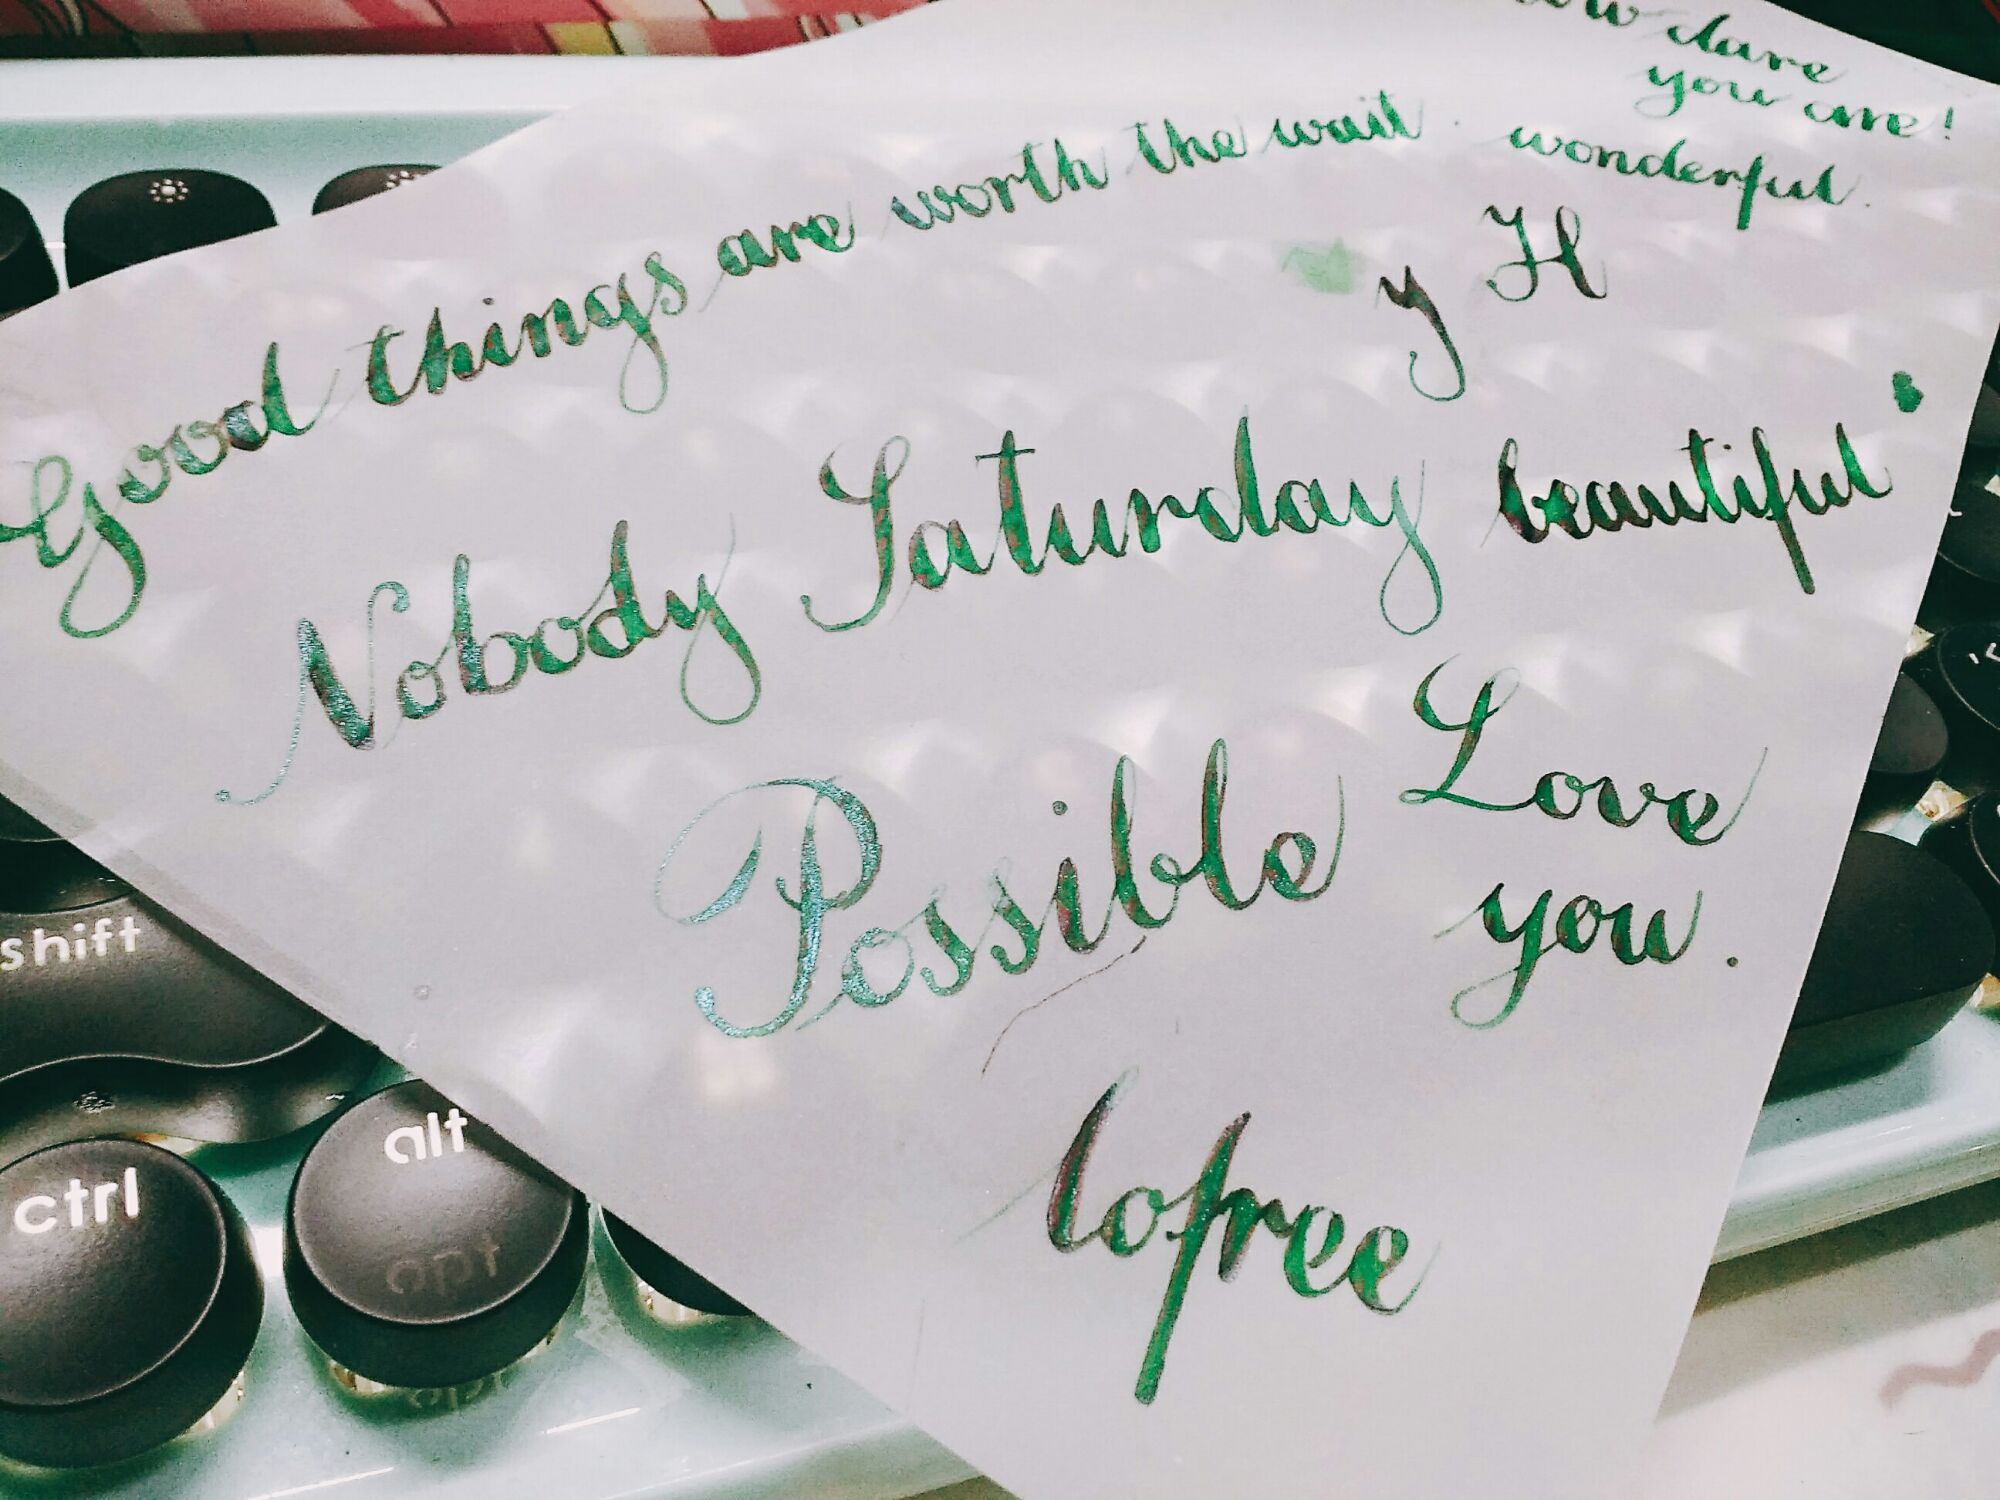 dare
you are!
Good things are worth the wait.
wonderful.
y H
Nobody Saturday beautiful
Possible
Love
you.
lofree
shift
alt
opt
ctrl